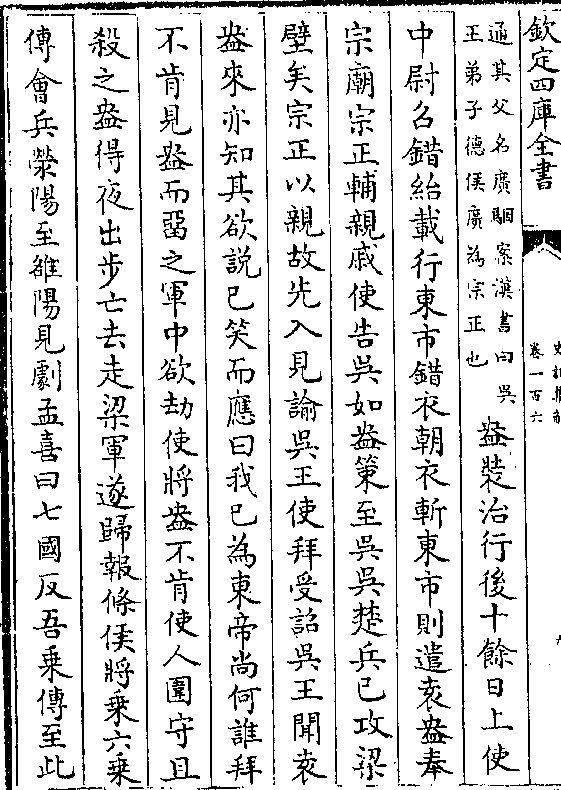 欽定四庫全書
卷一百六
通其父名廣駰案漢書曰吳
王弟子德侯廣為宗正也
盎裝治行後十餘日上使
中尉召錯紿載行東市錯衣朝衣斬東市則遣袁盎奉
宗廟宗正輔親戚使告吳如盎策至吳吳楚兵已攻梁
壁矣宗正以親故先入見諭吳王使拜受詔吳王聞袁
盎來亦知其欲說已笑而應曰我已為東帝尚何誰拜
不肯見盎而畱之軍中欲劫使將盎不肯使人圍守且
殺之盎得夜出步亡去走梁軍遂歸報條侯將乗六乗
傳會兵滎陽至雒陽見劇孟喜曰七國反吾乗傳至此